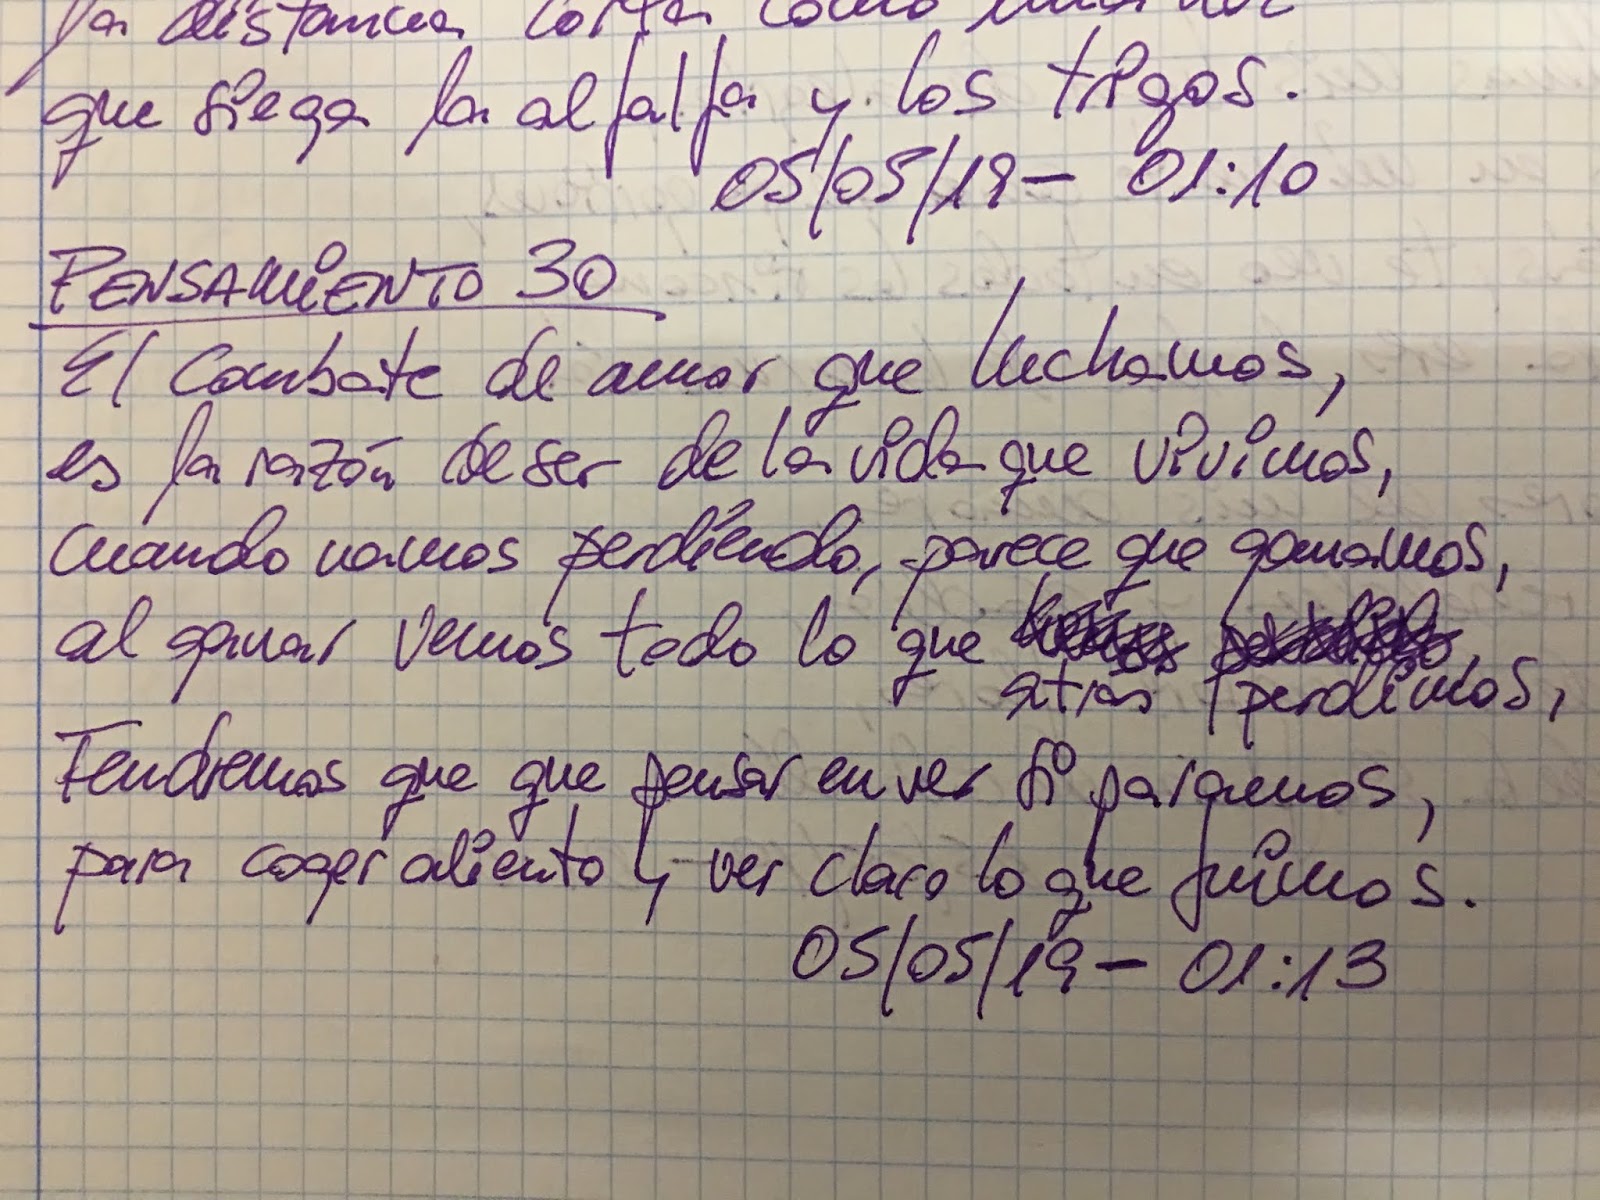 la distancia corta como una hoz
que siega la alfalfa y los trigos.
05/05/19 - 01:10
PENSAMIENTO 30
El combate de amor que luchamos,
es la razón de ser de la vida que vivimos,
cuando vamos perdiendo, parece que ganamos,
al ganar vemos todo lo que
atrás perdimos,
Tendremos que que pensar en ver si paramos,
para coger aliento y ver claro lo que fuimos.
05/05/19 - 01:13